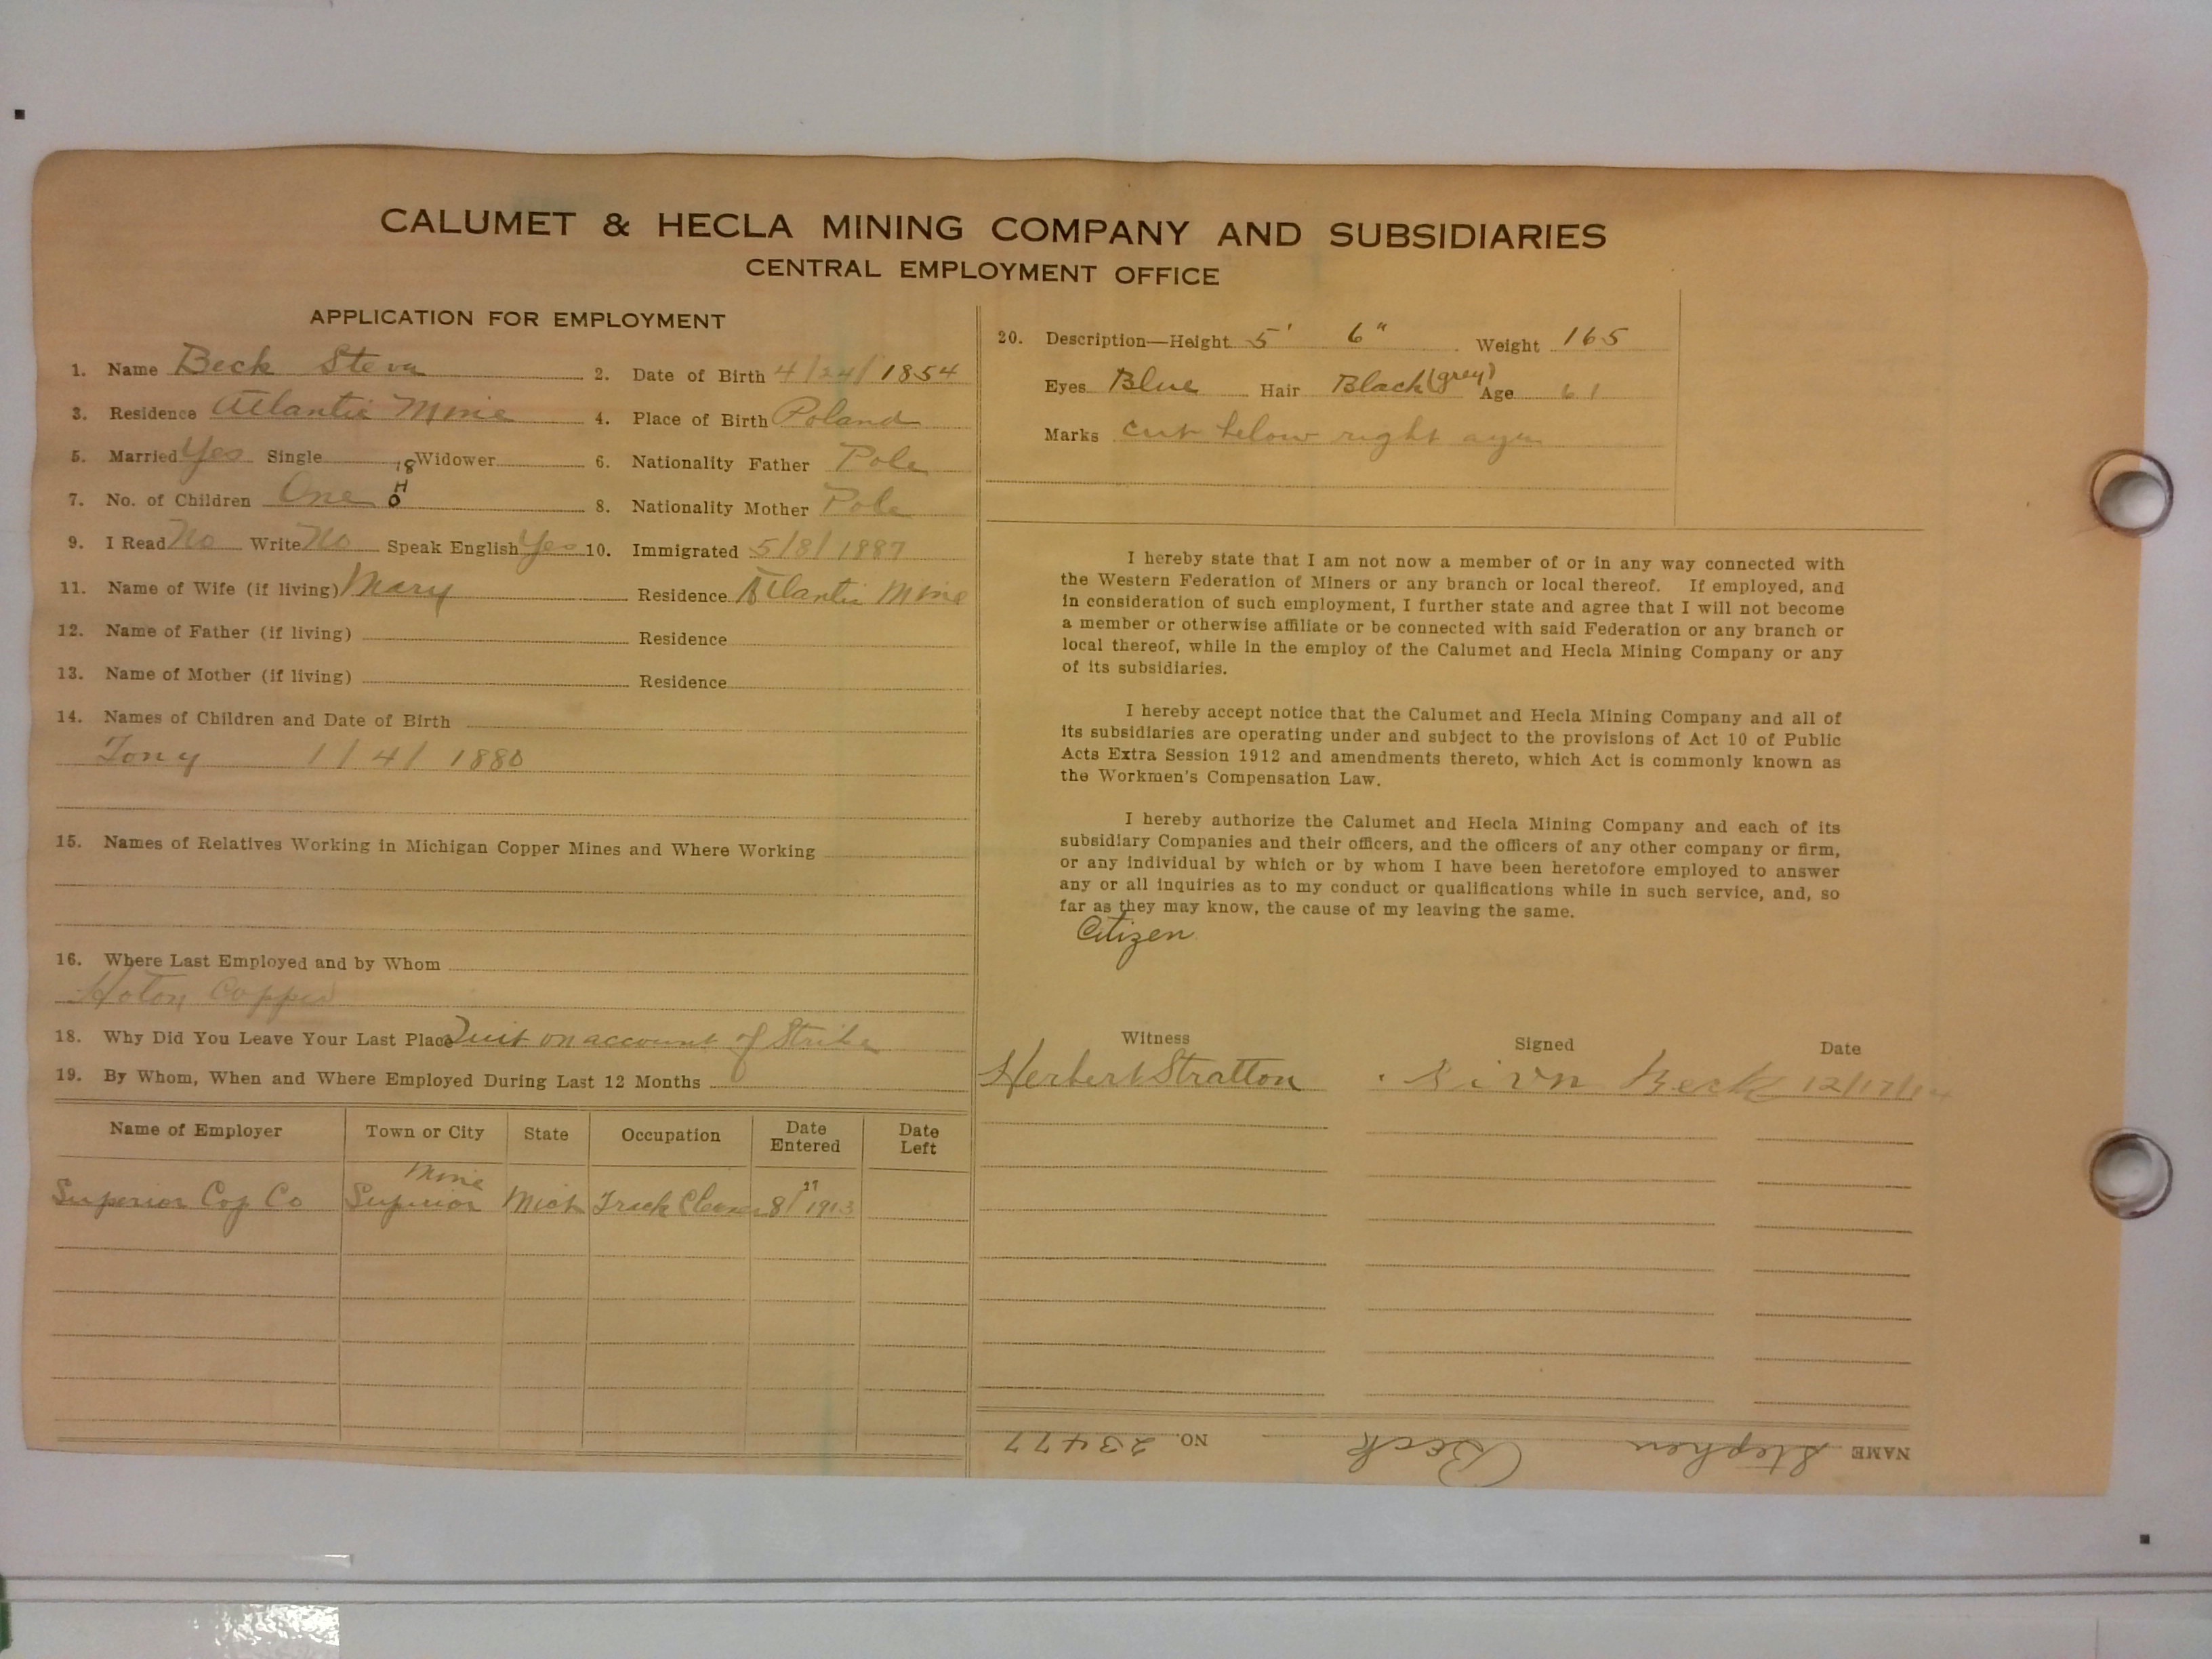 CALUMET & HECLA MINING COMPANY AND SUBSIDIARIES
CENTRAL EMPLOYMENT OFFICE
APPLICATION FOR EMPLOYMENT
1. Name Beck Steva 2. Date of Birth 4/24/1854
3. Residence Atlantic Mine 4. Place of Birth Poland
5. Married Yes Single Widower 6. Nationality Father Pole
7. No. of Children One 8. Nationality Mother Pole
9. I Read No Write No Speak English Yes 10. Immigrated 5/8/1887
11. Name of Wife (if living) Mary Residence Atlantic Mine
12. Name of Father (if living) Residence
13. Name of Mother (if living) Residence
14. Names of Children and Date of Birth
Tony 1/4/1880
15. Names of Relatives Working in Michigan Copper Mines and Where Working
16. Where Last Employed and by Whom
Copper
18. Why Did You Leave Your Last Place Quit on account of Strike
19. By Whom, When and Where Employed During Last 12 Months
Name of Employer Town or City State Occupation Date Entered Date Left
Superior Cop Co Superior Mine Mich Track Cleaner 8/27 1913
20. Description—Height 5' 6" Weight 165
Eyes Blue Hair Black (grey) Age 61
Marks cut below right
I hereby state that I am not now a member of or in any way connected with
the Western Federation of Miners or any branch or local thereof. If employed, and
in consideration of such employment, I further state and agree that I will not become
a member or otherwise affiliate or be connected with said Federation or any branch or
local thereof, while in the employ of the Calumet and Hecla Mining Company or any
of its subsidiaries.
I hereby accept notice that the Calumet and Hecla Mining Company and all of
its subsidiaries are operating under and subject to the provisions of Act 10 of Public
Acts Extra Session 1912 and amendments thereto, which Act is commonly known as
the Workmen's Compensation Law.
I hereby authorize the Calumet and Hecla Mining Company and each of its
subsidiary Companies and their officers, and the officers of any other company or firm,
or any individual by which or by whom I have been heretofore employed to answer
any or all inquiries as to my conduct or qualifications while in such service, and, so
far as they may know, the cause of my leaving the same.
Citizen
Witness Signed Date
Herbert Stratton Beck 12/17/14
NAME Stephen Beck NO. 23477